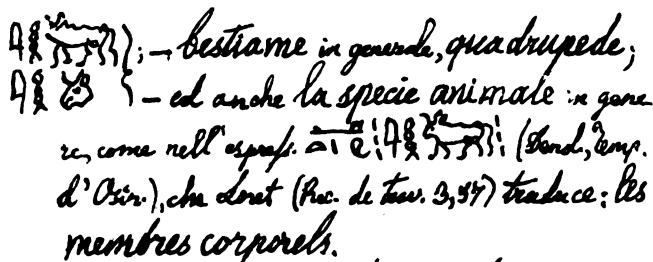 ; – bestiame in generale, quadrupede;
– ed anche la specie animale in gene
re, come nell'espress. (Dend., Temp.
d'Osir.), che Loret (Rec. de trav. 3,57) traduce: les
membres corporels.